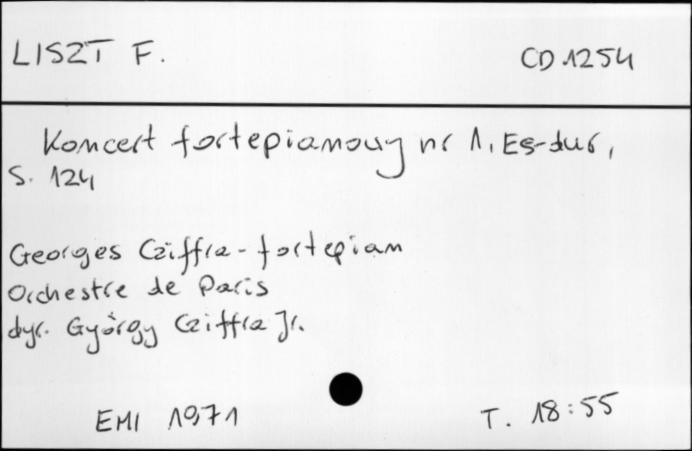 LISZT F.
CD 1254
Koncert fortepianowy nr 1, Es-dur,
S. 124
Georges Cziffra - fortepian
Orchestre de Paris
dyr. György Cziffra Jr.
EMI 1971
T. 18:55